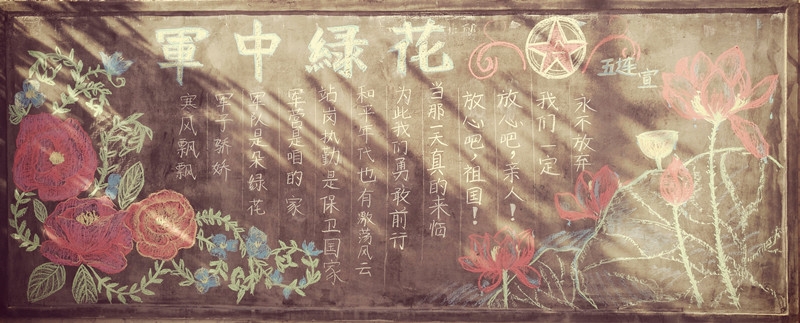 軍中緑花
五连宣
寒风飘飘
军子骄娇
军队是朵绿花
军营是咱的家
站岗执勤是保卫国家
和平年代也有激荡风云
为此我们勇敢前行
当那一天真的来临
放心吧，祖国！
放心吧，亲人！
我们一定
永不放弃